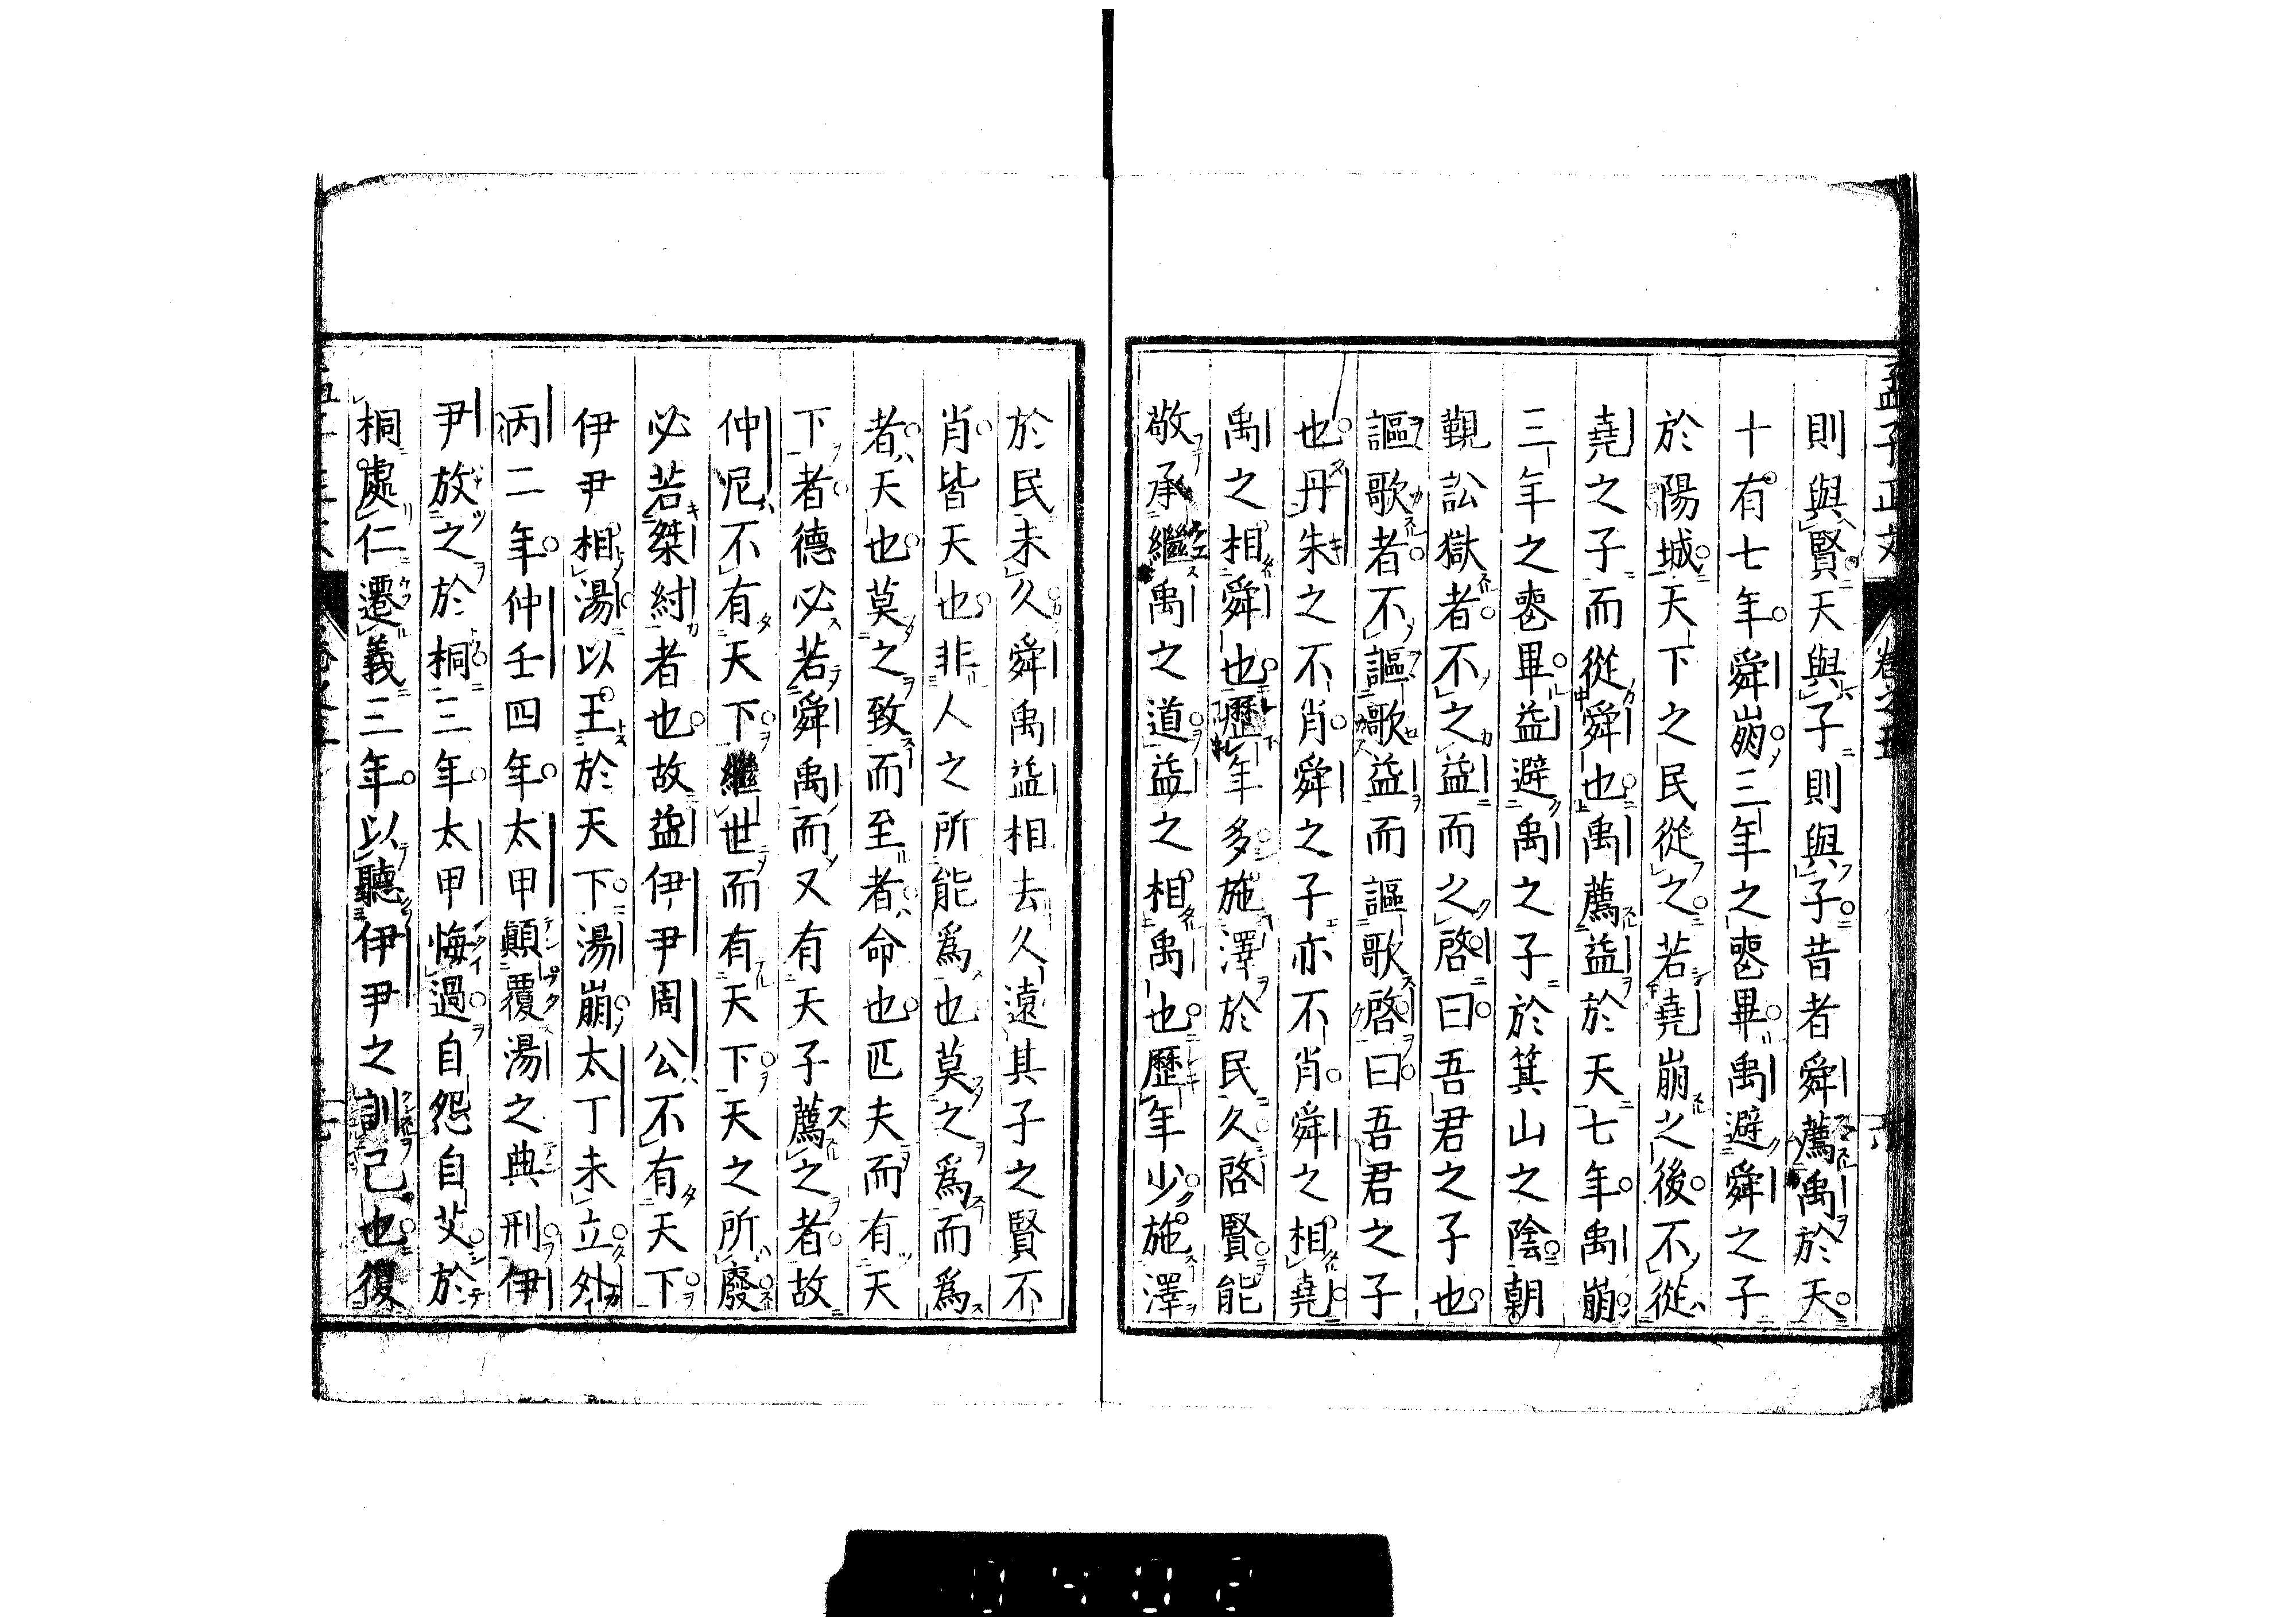 孟子正文 卷之五 十六
則與賢天與子則與子昔者舜薦禹於天
十有七年舜崩三年之喪畢禹避舜之子
於陽城天下之民從之若堯崩之後不從
堯之子而從舜也禹薦益於天七年禹崩
三年之喪畢益避禹之子於箕山之陰朝
覲訟獄者不之益而之啓曰吾君之子也
謳歌者不謳歌益而謳歌啓曰吾君之子
也丹朱之不肖舜之子亦不肖舜之相堯
禹之相舜也歷年多施澤於民久啓賢能
敬承繼禹之道益之相禹也歷年少施澤
於民未久舜禹益相去久遠其子之賢不
肖皆天也非人之所能爲也莫之爲而爲
者天也莫之致而至者命也匹夫而有天
下者德必若舜禹而又有天子薦之者故
仲尼不有天下繼世而有天下天之所廢
必若桀紂者也故益伊尹周公不有天下
伊尹相湯以王於天下湯崩太丁未立外
丙二年仲壬四年太甲顛覆湯之典刑伊
尹放之於桐三年太甲悔過自怨自艾於
桐處仁遷義三年以聽伊尹之訓己也復
0402